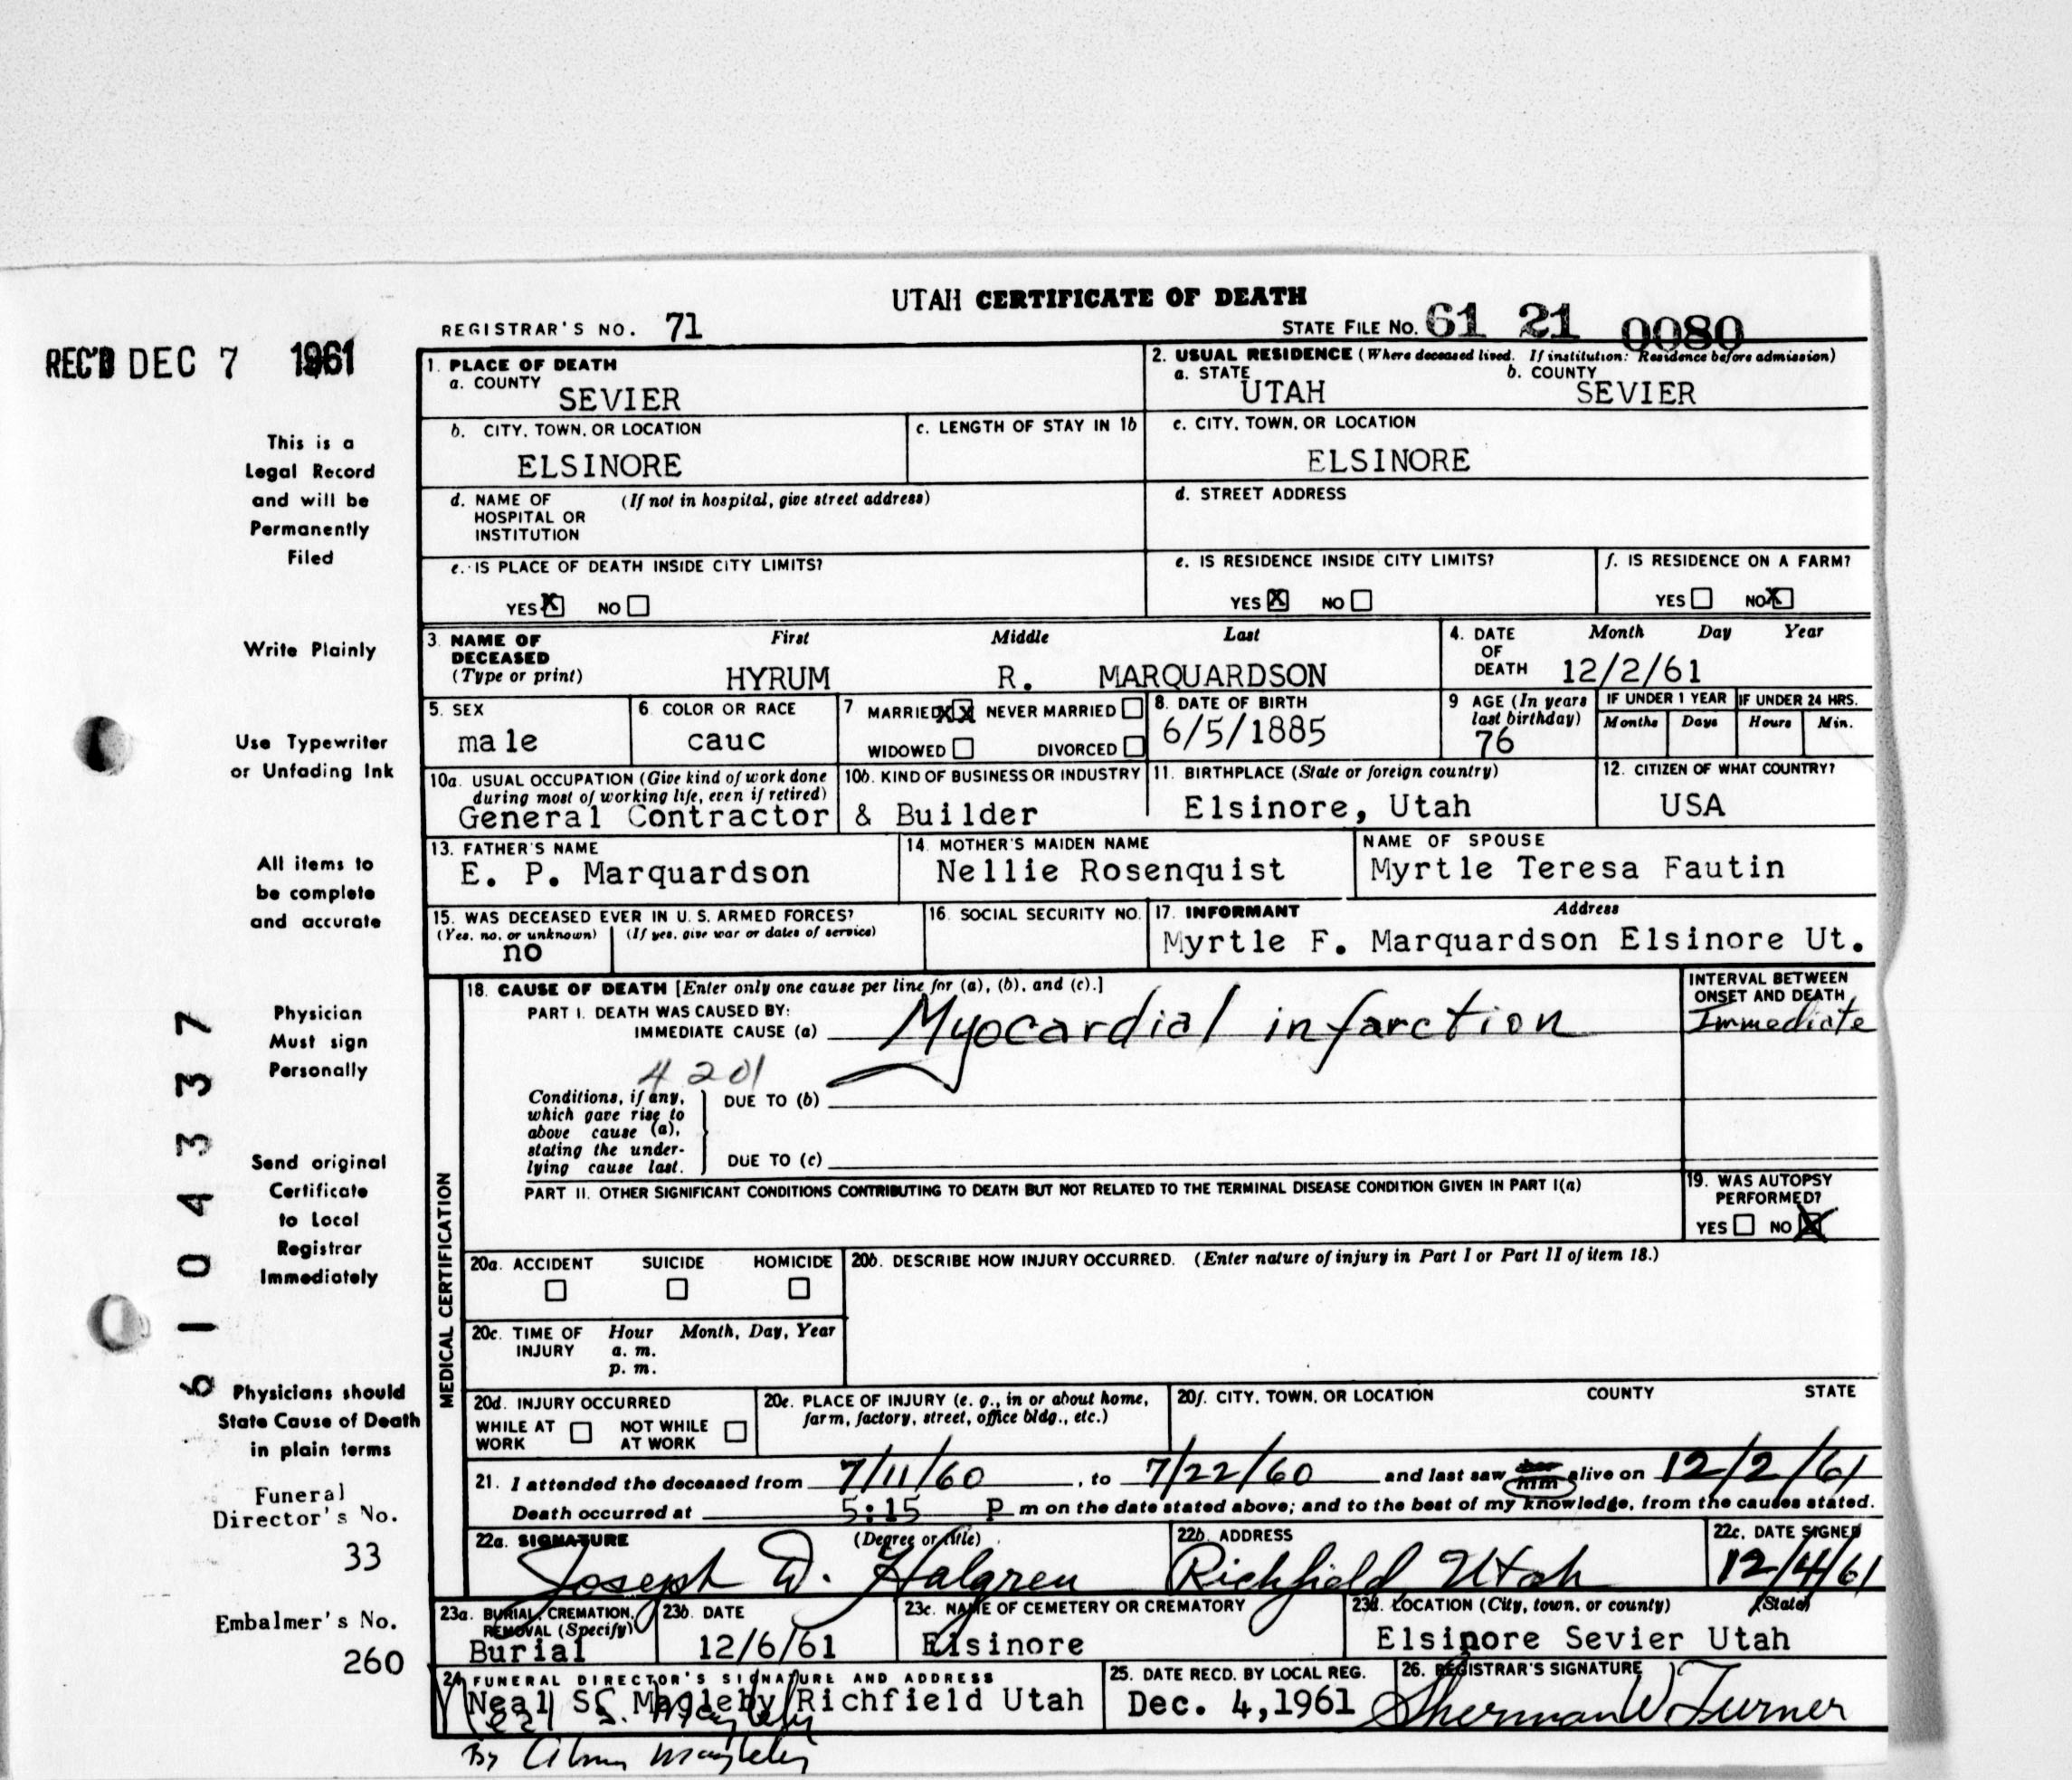 UTAH CERTIFICATE OF DEATH
REGISTRAR'S NO. 71
STATE FILE NO. 61 21 0080
REC'D DEC 7 1961
This is a
Legal Record
and will be
Permanently
Filed
Write Plainly
Use Typewriter
or Unfading Ink
All items to
be complete
and accurate
Physician
Must sign
Personally
Send original
Certificate
to Local
Registrar
Immediately
Physicians should
State Cause of Death
in plain terms
Funeral
Director's No.
33
Embalmer's No.
260
6104337
1. PLACE OF DEATH
a. COUNTY
SEVIER
2. USUAL RESIDENCE (Where deceased lived. If institution: Residence before admission)
a. STATE b. COUNTY
UTAH SEVIER
b. CITY, TOWN, OR LOCATION
ELSINORE
c. LENGTH OF STAY IN 1b
c. CITY, TOWN, OR LOCATION
ELSINORE
d. NAME OF (If not in hospital, give street address)
HOSPITAL OR
INSTITUTION
d. STREET ADDRESS
e. IS PLACE OF DEATH INSIDE CITY LIMITS?
YES X NO
e. IS RESIDENCE INSIDE CITY LIMITS?
YES X NO
f. IS RESIDENCE ON A FARM?
YES NO X
3. NAME OF First Middle Last
DECEASED
(Type or print) HYRUM R. MARQUARDSON
4. DATE Month Day Year
OF
DEATH 12/2/61
5. SEX
male
6. COLOR OR RACE
cauc
7 MARRIED XX NEVER MARRIED
WIDOWED DIVORCED
8. DATE OF BIRTH
6/5/1885
9 AGE (In years
last birthday)
76
IF UNDER 1 YEAR IF UNDER 24 HRS.
Months Days Hours Min.
10a. USUAL OCCUPATION (Give kind of work done
during most of working life, even if retired)
General Contractor
10b. KIND OF BUSINESS OR INDUSTRY
& Builder
11. BIRTHPLACE (State or foreign country)
Elsinore, Utah
12. CITIZEN OF WHAT COUNTRY?
USA
13. FATHER'S NAME
E. P. Marquardson
14. MOTHER'S MAIDEN NAME
Nellie Rosenquist
NAME OF SPOUSE
Myrtle Teresa Fautin
15. WAS DECEASED EVER IN U. S. ARMED FORCES?
(Yes, no, or unknown) (If yes, give war or dates of service)
no
16. SOCIAL SECURITY NO.
17. INFORMANT Address
Myrtle F. Marquardson Elsinore Ut.
MEDICAL CERTIFICATION
18. CAUSE OF DEATH [Enter only one cause per line for (a), (b), and (c).]
PART I. DEATH WAS CAUSED BY:
IMMEDIATE CAUSE (a) Myocardial infarction
INTERVAL BETWEEN
ONSET AND DEATH
Immediate
4201
Conditions, if any,
which gave rise to
above cause (a),
stating the under-
lying cause last.
DUE TO (b)
DUE TO (c)
PART II. OTHER SIGNIFICANT CONDITIONS CONTRIBUTING TO DEATH BUT NOT RELATED TO THE TERMINAL DISEASE CONDITION GIVEN IN PART I(a)
19. WAS AUTOPSY
PERFORMED?
YES NO X
20a. ACCIDENT SUICIDE HOMICIDE
20b. DESCRIBE HOW INJURY OCCURRED. (Enter nature of injury in Part I or Part II of item 18.)
20c. TIME OF Hour Month, Day, Year
INJURY a. m.
p. m.
20d. INJURY OCCURRED
WHILE AT NOT WHILE
WORK AT WORK
20e. PLACE OF INJURY (e. g., in or about home,
farm, factory, street, office bldg., etc.)
20f. CITY, TOWN, OR LOCATION COUNTY STATE
21. I attended the deceased from 7/11/60, to 7/22/60 and last saw her him alive on 12/2/61
Death occurred at 5:15 P m on the date stated above; and to the best of my knowledge, from the causes stated.
22a. SIGNATURE (Degree or title)
Joseph D. Halgren
22b. ADDRESS
Richfield, Utah
22c. DATE SIGNED
12/4/61
23a. BURIAL, CREMATION,
REMOVAL (Specify)
Burial
23b. DATE
12/6/61
23c. NAME OF CEMETERY OR CREMATORY
Elsinore
23d. LOCATION (City, town, or county) (State)
Elsinore Sevier Utah
24 FUNERAL DIRECTOR'S SIGNATURE AND ADDRESS
Neal S. Magleby Richfield Utah
Neal S. Magleby
By Magleby
25. DATE RECD. BY LOCAL REG.
Dec. 4, 1961
26. REGISTRAR'S SIGNATURE
Sherman W Turner